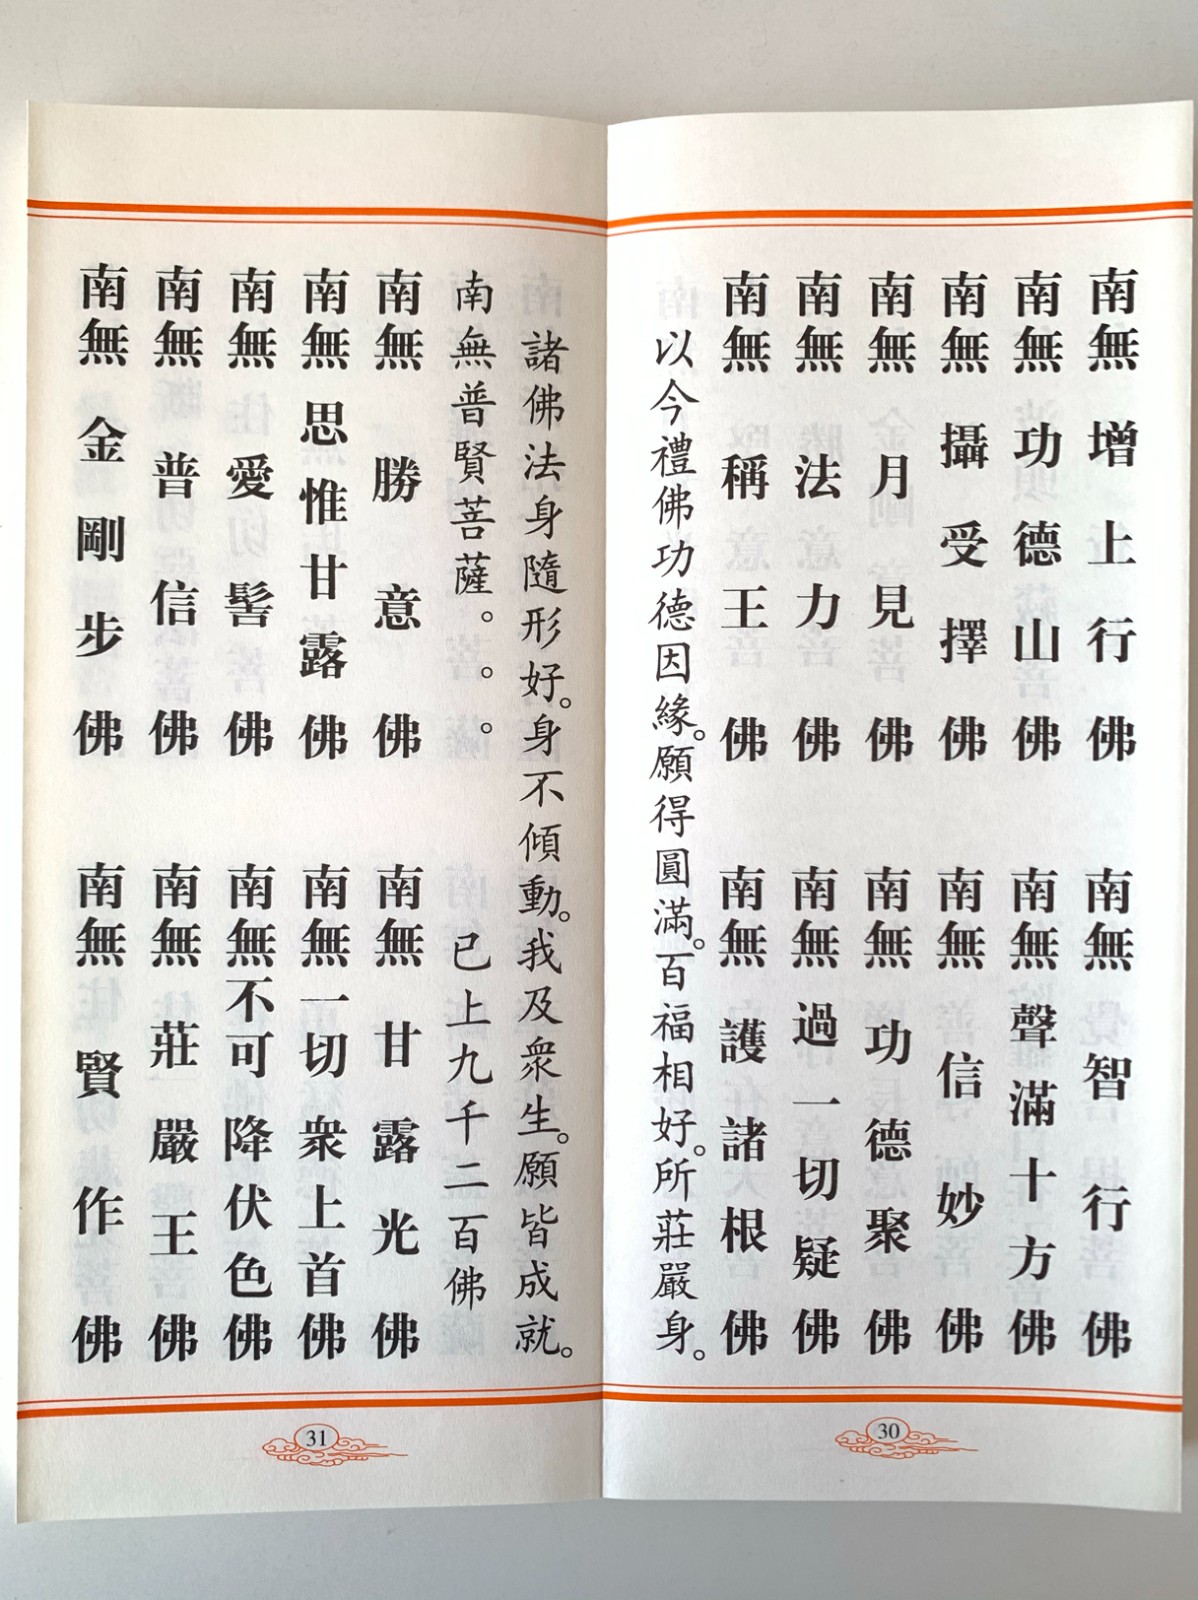 南無增上行佛　南無智行佛
南無功德山佛　南無聲滿十方佛
南無攝受擇佛　南無信妙佛
南無月見佛　南無功德聚佛
南無法力佛　南無過一切疑佛
南無稱王佛　南無護諸根佛
以今禮佛功德因緣。願得圓滿。百福相好。所莊嚴身。
30
諸佛法身隨形好。身不傾動。我及眾生。願皆成就。
南無普賢菩薩。。。已上九千二百佛
南無勝意佛　南無甘露光佛
南無思惟甘露佛　南無一切眾上首佛
南無愛髻佛　南無不可降伏色佛
南無普信佛　南無莊嚴王佛
南無金剛步佛　南無賢作佛
31